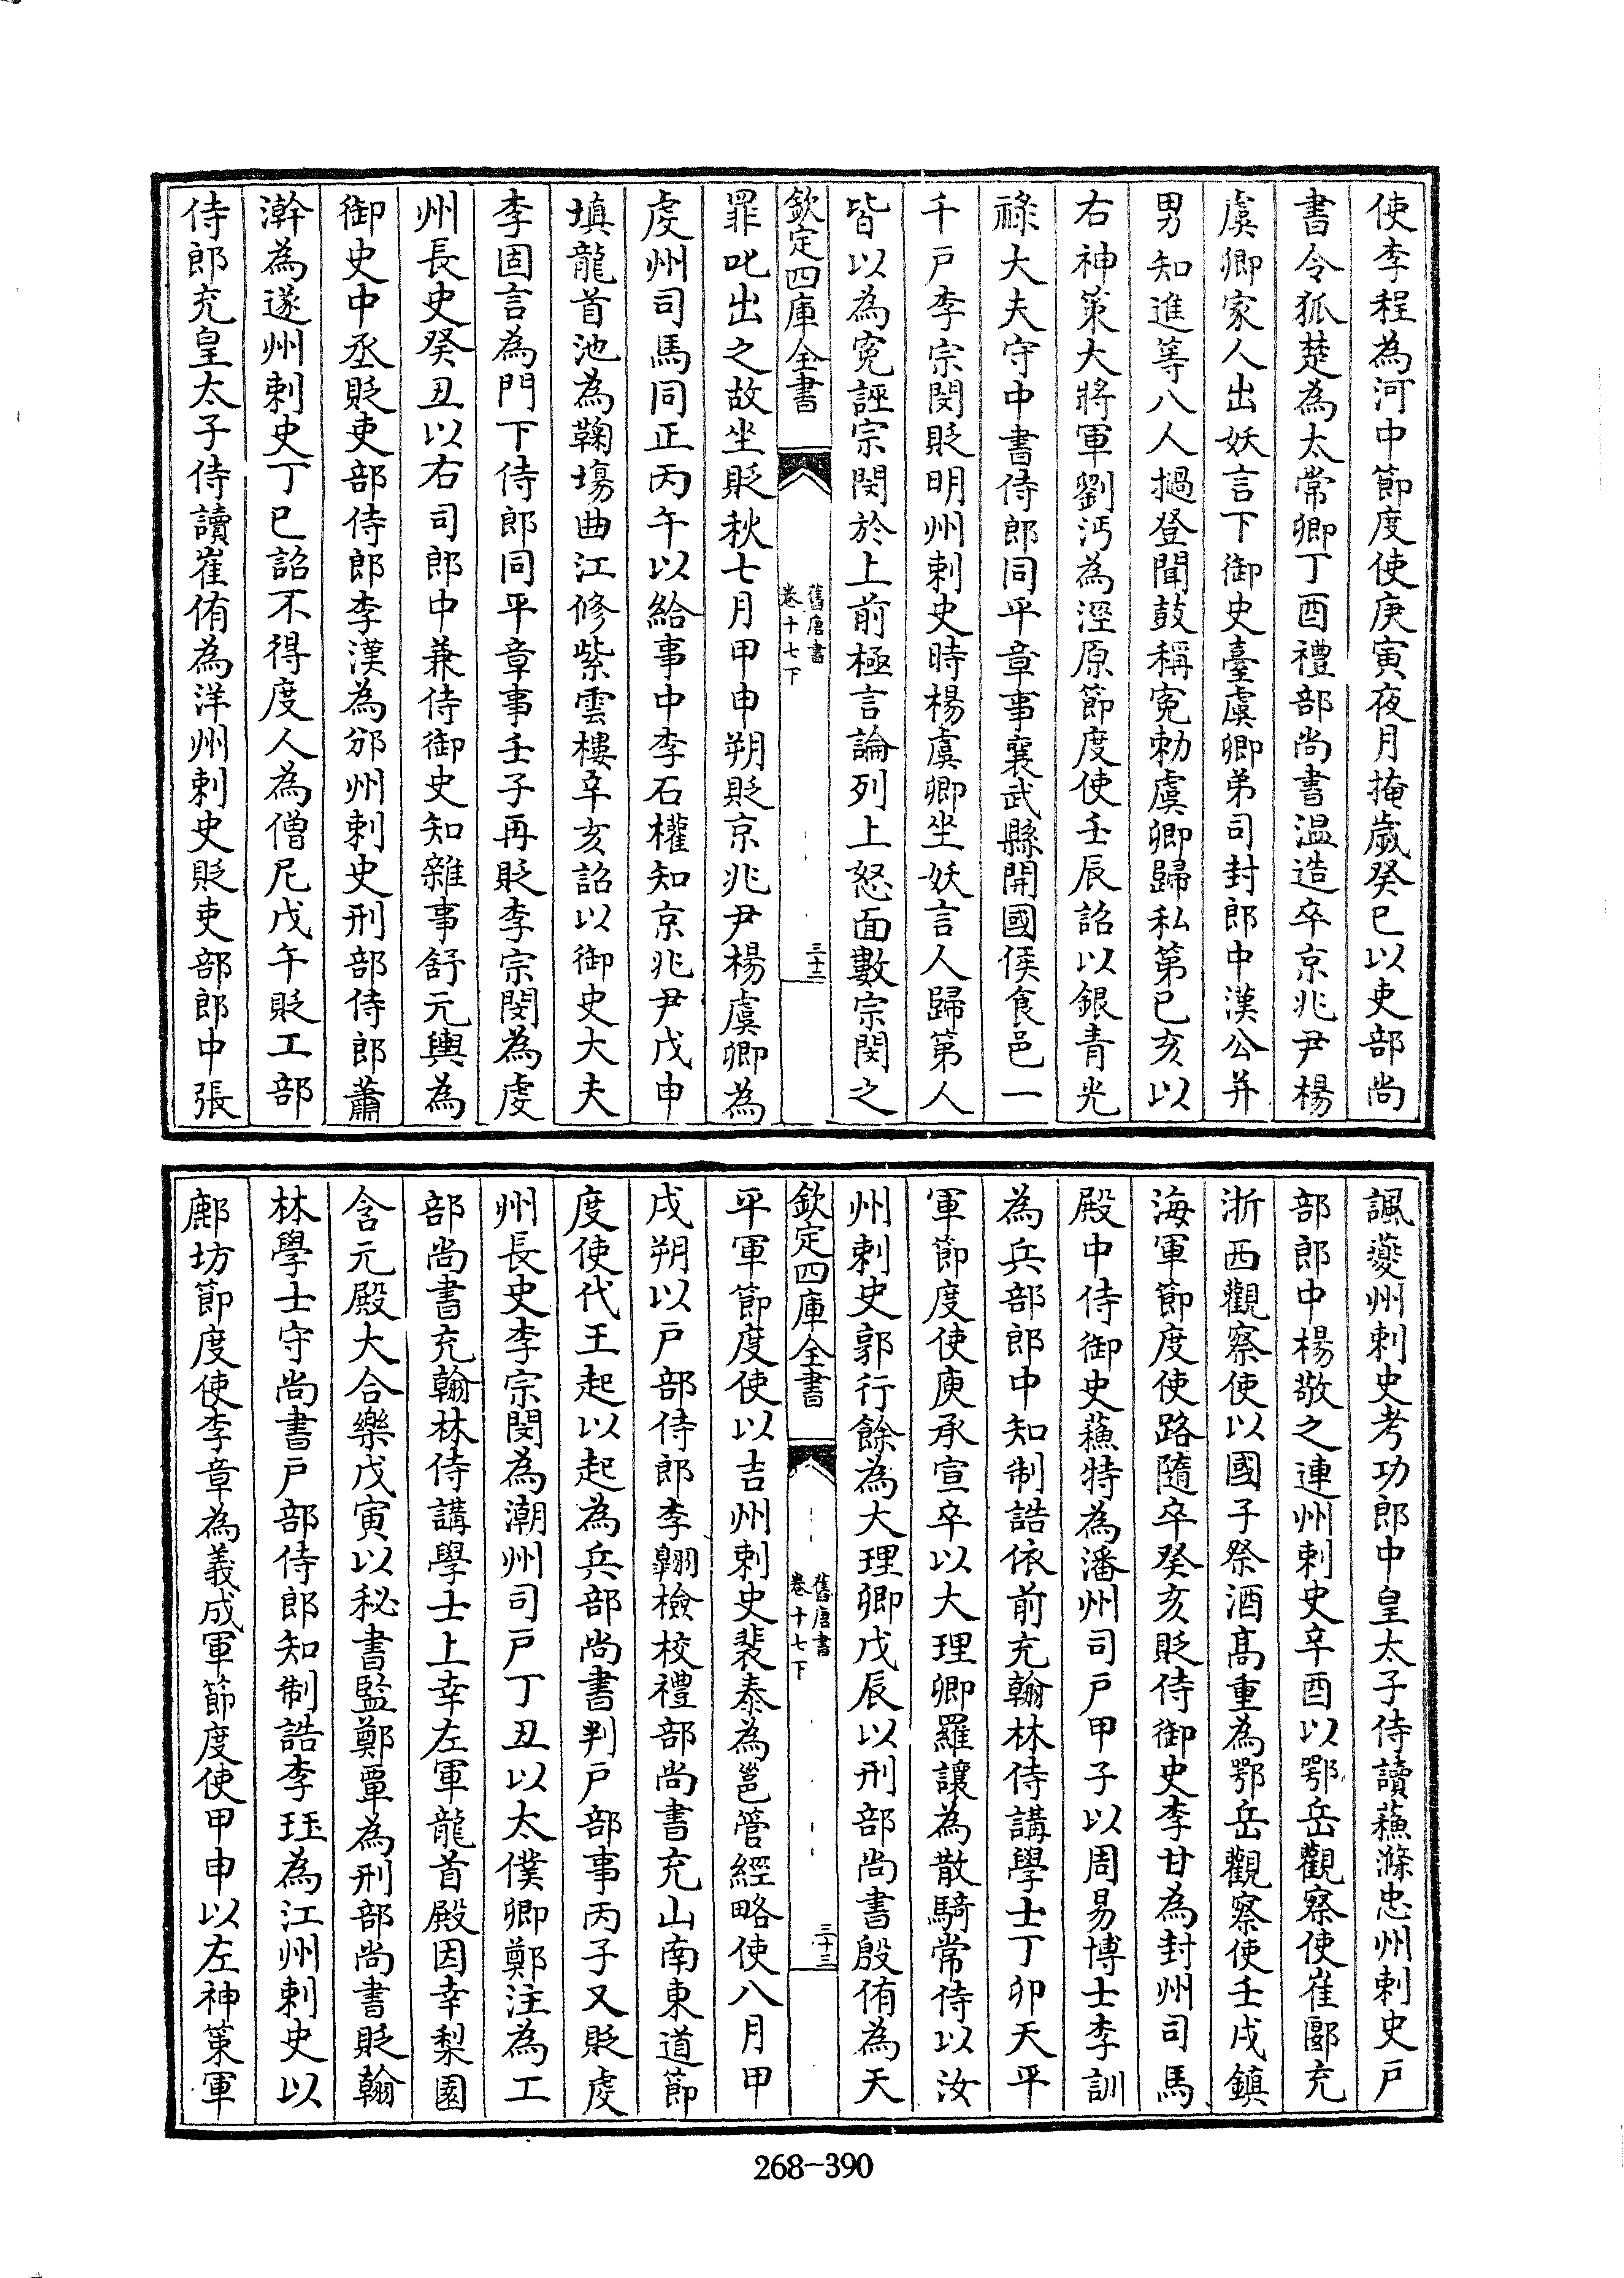 使李程為河中節度使庚寅夜月掩歲癸巳以吏部尚
書令狐楚為太常卿丁酉禮部尚書温造卒京兆尹楊
虞卿家人出妖言下御史臺虞卿弟司封郎中漢公并
男知進等八人撾登聞鼓稱寃勅虞卿歸私第己亥以
右神策大將軍劉沔為涇原節度使壬辰詔以銀青光
祿大夫守中書侍郎同平章事襄武縣開國侯食邑一
千戸李宗閔貶明州刺史時楊虞卿坐妖言人歸第人
皆以為寃誣宗閔於上前極言論列上怒面數宗閔之
欽定四庫全書
舊唐書
卷十七下
三十二
罪叱出之故坐貶秋七月甲申朔貶京兆尹楊虞卿為
虔州司馬同正丙午以給事中李石權知京兆尹戊申
填龍首池為鞠塲曲江修紫雲樓辛亥詔以御史大夫
李固言為門下侍郎同平章事壬子再貶李宗閔為虔
州長史癸丑以右司郎中兼侍御史知雜事舒元輿為
御史中丞貶吏部侍郎李漢為邠州刺史刑部侍郎蕭
澣為遂州刺史丁巳詔不得度人為僧尼戊午貶工部
侍郎充皇太子侍讀崔侑為洋州刺史貶吏部郎中張
諷夔州刺史考功郎中皇太子侍讀蘓滌忠州刺史戸
部郎中楊敬之連州刺史辛酉以鄂岳觀察使崔郾充
浙西觀察使以國子祭酒髙重為鄂岳觀察使壬戌鎮
海軍節度使路隨卒癸亥貶侍御史李甘為封州司馬
殿中侍御史蘓特為潘州司戸甲子以周易博士李訓
為兵部郎中知制誥依前充翰林侍講學士丁卯天平
軍節度使庾承宣卒以大理卿羅讓為散騎常侍以汝
州刺史郭行餘為大理卿戊辰以刑部尚書殷侑為天
欽定四庫全書
舊唐書
卷十七下
三十三
平軍節度使以吉州刺史裴泰為邕管經略使八月甲
戌朔以戸部侍郎李翺檢校禮部尚書充山南東道節
度使代王起以起為兵部尚書判戸部事丙子又貶處
州長史李宗閔為潮州司戸丁丑以太僕卿鄭注為工
部尚書充翰林侍講學士上幸左軍龍首殿因幸梨園
含元殿大合樂戊寅以秘書監鄭覃為刑部尚書貶翰
林學士守尚書戸部侍郎知制誥李珏為江州刺史以
鄜坊節度使李章為義成軍節度使甲申以左神策軍
268-390